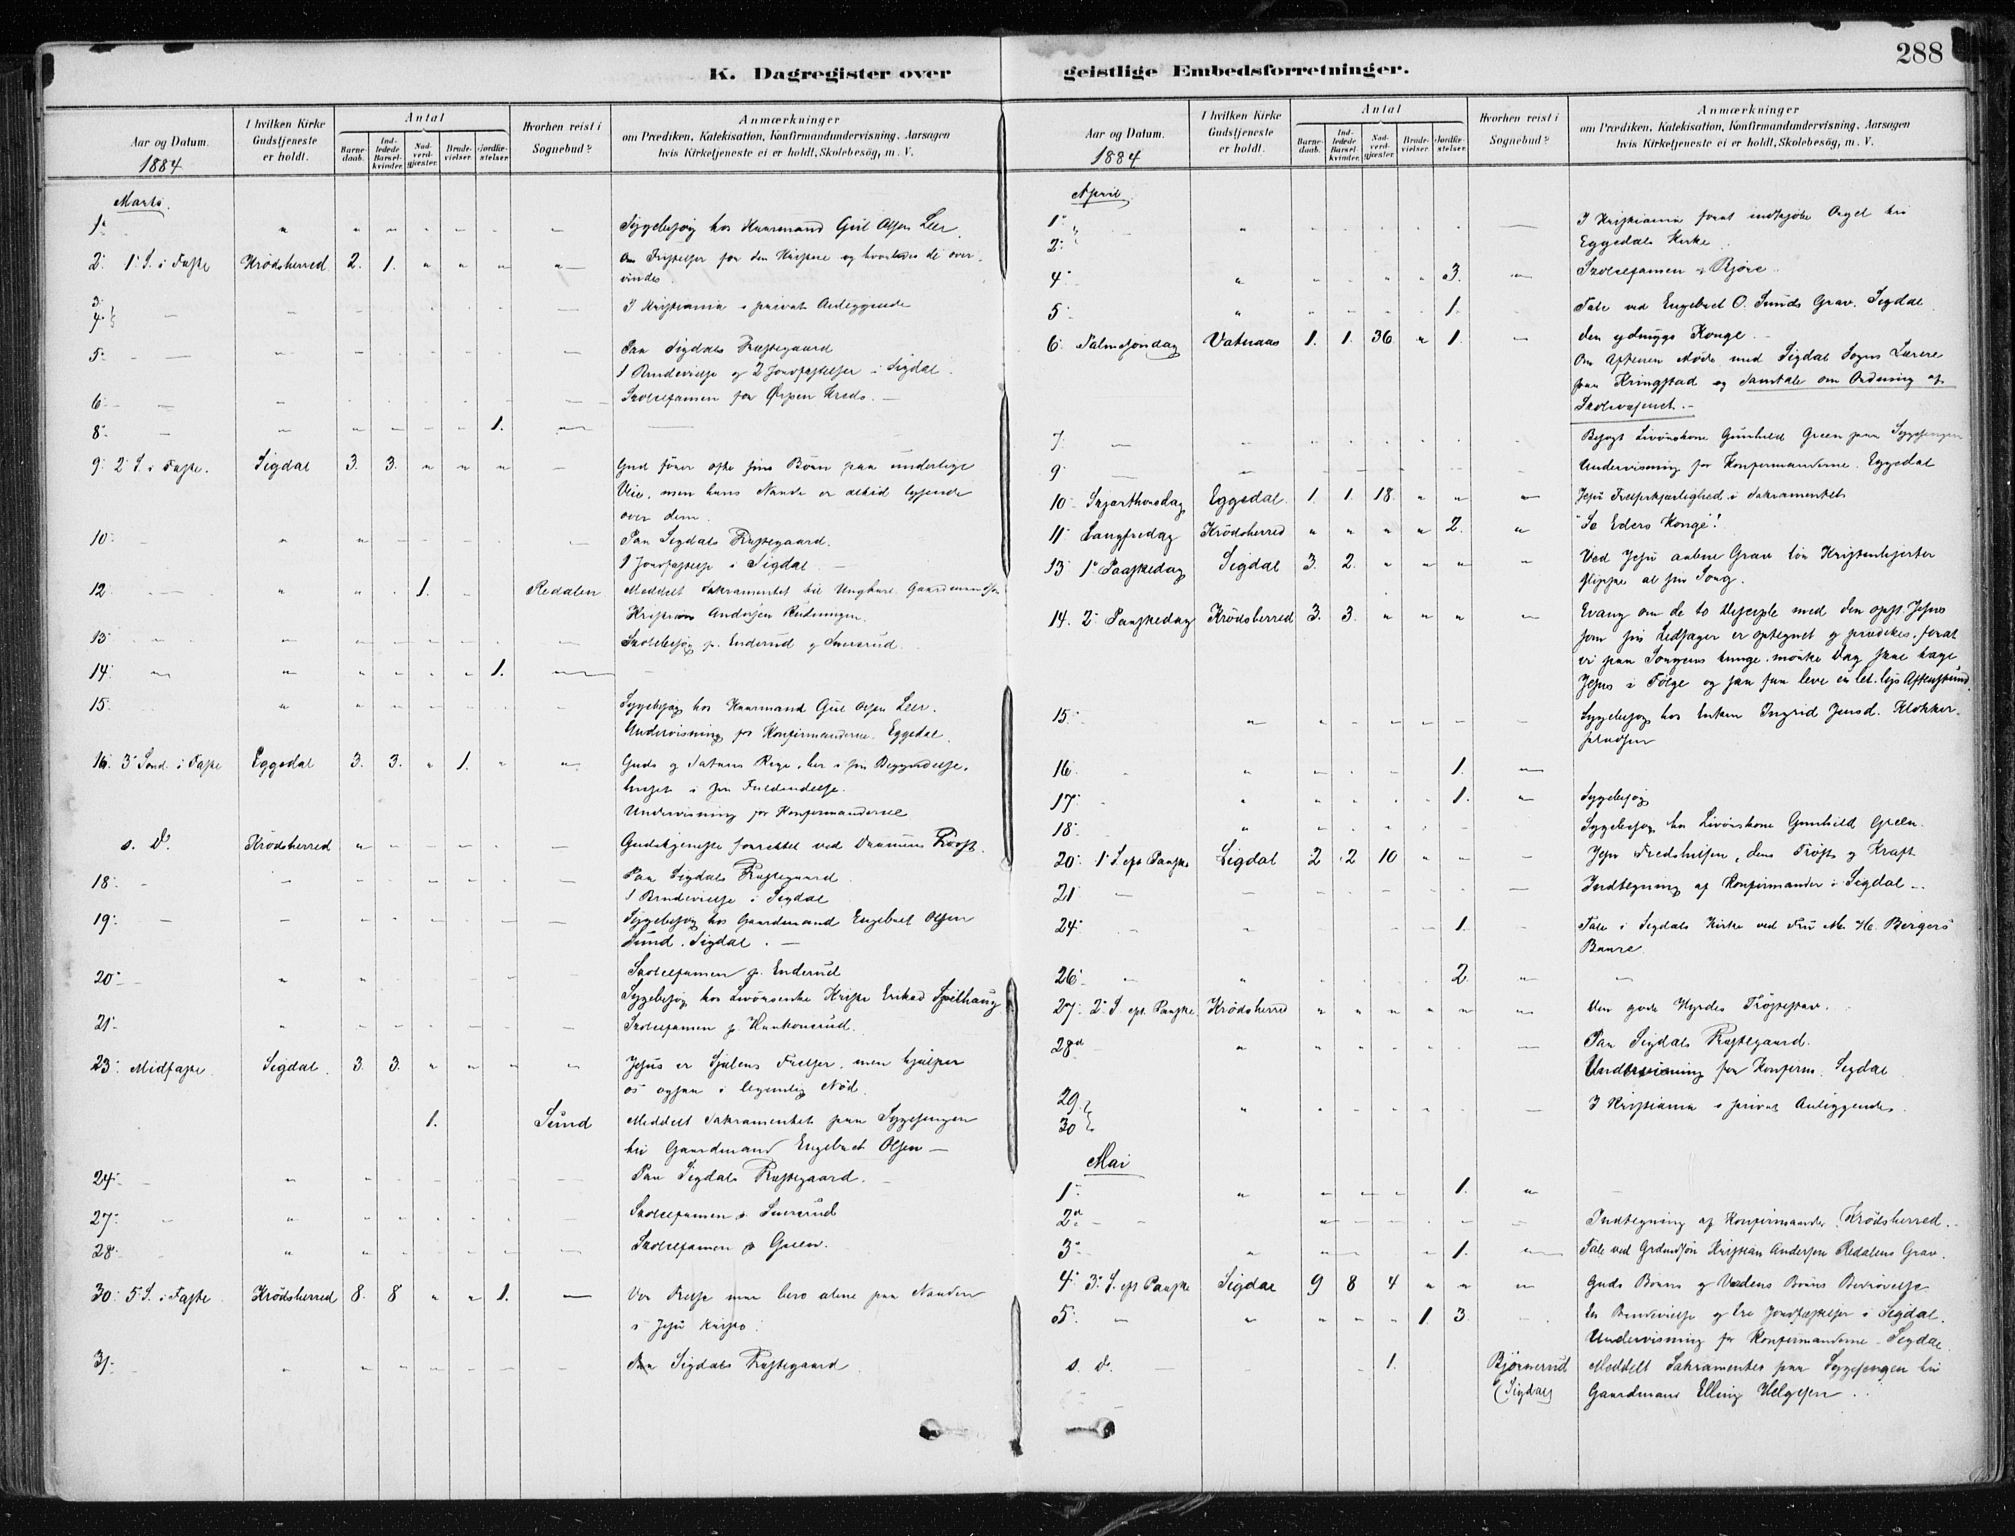 K. Dagregister over
Aar og Datum.
1884
I hvilken Kirke Gudstjeneste er holdt.
Antal
Barnedaab.
Indledede Barselkvinder.
Nadverdgjester.
Brudevielser.
Jordfæstelser.
Hvorhen reist i Sognebud?
Anmærkninger
om Prædiken, Katekisation, Konfirmandundervisning, Aarsagen
hvis Kirketjeneste ei er holdt, Skolebesög, m. V.
Marts.
1. Sygebesøg hos Huusmand Gul Olsen Leer.
2. 1. S. i Faste Krödsherred 2. 1. Om Fristelser for den Kristne og hvorledes de over-
vindes.
3.
4. I Kristiania i privat Anliggende
5. Paa Sigdals Præstegaard
1 Brudevielse og 2 Jordfæstelser i Sigdal.
6. Skoleexamen for Ørpen Kreds.
8. 1.
9. 2. S. i Faste. Sigdal 3. 3. Gud fører ofte sine Börn paa underlige
Veie, men hans Naade er altid lysende
over dem.
10. Paa Sigdals Præstegaard.
1 Jordfæstelse i Sigdal.
12. 1. Redalen Meddelt Sakramentet til Ungkarl Gaardmandssøn
Kristian Andersen
13. Skolebesøg p. Enderud og Snersrud.
14. 1.
15. Sygebesøg hos Huusmand Gul Olsen Leer.
Undervisning for Konfirmanderne. Eggedal.
16. 3. Sønd. i Faste Eggedal 3. 3. 1. Guds og Satans Rige, her i sin Begyndelse,
hisset i sin Fuldendelse.
Undervisning for Konfirmanderne
s. D. Krödsherred Gudstjeneste forrettet ved
18. Paa Sigdals Præstegaard
1 Brudevielse i Sigdal
19. Sygebesøg hos Gaardmand Engebret Olsen
Sund. Sigdal.
20. Skoleexamen p. Enderud
Sygebesøg hos Livörsenke Kristi Eriksd Spilhaug
21. Skoleexamen p. Haakonsrud.
23. Midfaste. Sigdal. 3. 3. Jesus er Sjælens Frelser, men hjælper
os ogsaa i legemlig Nöd.
1. Sund Meddelt Sakramentet paa Sygesengen
til Gaardmand Engebret Olsen
24. Paa Sigdals Præstegaard.
27. Skoleexamen p. Snersrud
28. Skoleexamen p. Green.
30. 5. S. i Faste Krödsherred 8. 8 1. Vor Frelse maa bero alene paa Naaden
i Jesu Kristo.
31. Paa Sigdals Præstegaard.
geistlige Embedsforretninger.
288
Aar og Datum.
1884
I hvilken Kirke Gudstjeneste er holdt.
Antal
Barnedaab.
Indledede Barselkvinder.
Nadverdgjester.
Brudevielser.
Jordfæstelser.
Hvorhen reist i Sognebud?
Anmærkninger
om Prædiken, Katekisation, Konfirmandundervisning, Aarsagen
hvis Kirketjeneste ei er holdt, Skolebesög, m. V.
April.
1. I Kristiania forat indkjøbe Orgel til
2. Eggedals Kirke.
4. 3. Skoleexamen p. Bjøre.
5. 1. Tale ved Engebret O. Sunds Grav. Sigdal.
6. Palmesöndag Vatnaas 1. 1. 36 1. Den ydmyge Konge.
Om Aftenen Møde med Sigdal Sogns Lærere
paa Kringstad og Samtale om Ordning af
Skolevæsenet.
7. Besøgt Livörskone Gunhild Green paa Sygesengen
9. Undervisning for Konfirmanderne. Eggedal
10. Skjærthorsdag Eggedal 1. 1. 18. Jesu Frelserkjærlighed i Sakramentet
11. Langfredag Krödsherred 2. "Se Eders Konge"!
13. 1. Paaskedag Sigdal 3. 2. Ved Jesu aabne Grav bör Kristenhjertet
slippe al sin Sorg.
14. 2. Paaskedag Krödsherred 3. 3. Evang om de to Disciple med den opst. Jesus
som sin Ledsager er optegnet og prædikes, forat
vi paa Sorgens tunge, mörke Dag skal tage
Jesus i Følge og saa faa leve en let lys Aftenstund.
15. Sygebesøg hos Enken Ingrid Jensd. Klokker-
pladsen
16. 1.
17. 1. Sygebesøg
18. Sygebesøg hos Livörskone Gunhild Green.
20. 1. S. eft. Paaske Sigdal 2 2 10 Jesu Fredshilsen, dens Trøst og Kraft
21 Indtegning af Konfirmander i Sigdal
24. 1. Tale i Sigdals Kirke ved Fru M. H. Bergers
Baare.
26. 2
27. 2. S. eft. Paaske Krödsherred Den gode Hyrdes Trøstestav.
28. Paa Sigdals Præstegaard.
Undervisning for Konfirm. Sigdal
29.
30 I Kristiania i privat Anliggende.
Mai
1. 1.
2. Indtegning af Konfirmander. Krödsherred.
3. 1. Tale ved Grdmdsön Kristian Andersen Redalens Grav.
4. 3. S. eft. Paaske Sigdal 9 8 4 Guds Børns og Verdens Børns Bedrövelse
5. 1. 3. En Brudevielse og tre Jordfæstelser i Sigdal.
Undervisning for Konfirmanderne. Sigdal.
s. D. 1. Bjørnerud Meddelt Sakramentet paa Sygesengen til
(Sigdal) Gaardmand Elling Helgesen